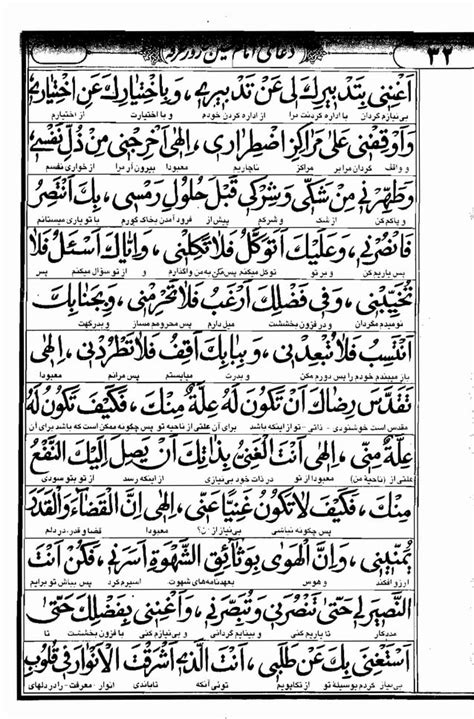 دعای امام حسین در روز عرفه
۳۲
اَغْنِنى بِتَدْبيرِكَ لى عَنْ تَدْبيرى، وَبِاخْتِيارِكَ عَنِ اخْتِيارى
بی‌نیازم کن با اداره کردنت مرا از اداره کردن خودم و با اختیارت از اختیارم
وَاَوْقِفْنى عَلى مَراكِزِ اضْطِرارى، اِلهى اَخْرِجْنى مِنْ ذُلِّ نَفْسى،
و واقف گردان مرا بر مراکز ناچاریم معبودا بیرون آر مرا از خواری نفسم
وَطَهِّرْنى مِنْ شَكّى وَشِرْكى قَبْلَ حُلُولِ رَمْسى، بِكَ اَنْتَصِرُ
و پاکم کن از شک و شرکم پیش از فرود آمدن بخاک گورم با تو یاری میستانم
فَانْصُرْنى، وَعَلَيْكَ اَتَوَكَّلُ فَلا تَكِلْنى، وَاِيّاكَ اَسْئَلُ فَلا
پس یاریم کن و بر تو توکل میکنم پس مکن به من واگذارم و از تو سؤال میکنم پس
تُخَيِّبْنى، وَفى فَضْلِكَ اَرْغَبُ فَلا تَحْرِمْنى، وَبِجَنابِكَ
نومیدم مگردان و در فزون بخششت میل دارم پس محرومم مساز و بدرگهت
اَنْتَسِبُ فَلا تُبْعِدْنى، وَبِبابِكَ اَقِفُ فَلا تَطْرُدْنى، اِلهى
باز میبندم خودم را پس دورم مکن و بدرت میایستم پس مرانم معبودا
تَقَدَّسَ رِضاكَ اَنْ تَكُونَ لَهُ عِلَّةٌ مِنْكَ، فَكَيْفَ تَكُونُ لَهُ
مقدس است خوشنودی ذاتی تو از اینکه باشد برای آن علتی از ناحیه تو پس چگونه ممکن است که باشد برای آن
عِلَّةٌ مِنّى، اِلهى اَنْتَ الْغَنِىُّ بِذاتِكَ اَنْ يَصِلَ اِلَيْكَ النَّفْعُ
علتی از (ناحیه من) معبودا از تو در ذات خود بی‌نیازی از اینکه رسد از تو بتو سودی
مِنْكَ، فَكَيْفَ لا تَكُونُ غَنِيّاً عَنّى، اِلهى اِنَّ الْقَضاءَ وَالْقَدَرَ
پس چگونه نباشی بی‌نیاز از من؟ معبودا قضا و قدر، در دلم
يُمَنّينى، وَاِنَّ الْهَوى بِوَثائِقِ الشَّهْوَةِ اَسَرَنى، فَكُنْ اَنْتَ
آرزو افکند و هوس بعهدنامه‌های شهوت اسیرم کرد پس بباش تو برایم
النَّصيرَ لى حَتّى تَنْصُرَنى وَتُبَصِّرَنى، وَاَغْنِنى بِفَضْلِكَ حَتّى
مددکار تا یاریم کنی و بینایم گردانی و بی‌نیازم کنی با فزون بخششت تا
اَسْتَغْنِىَ بِكَ عَنْ طَلَبى، اَنْتَ الَّذى اَشْرَقْتَ الْاَنْوارَ فى قُلُوبِ
بی‌نیاز گردم بوسیله تو از تکاپویم توئی آنکه تاباندی انوار معرفت را در دلهای